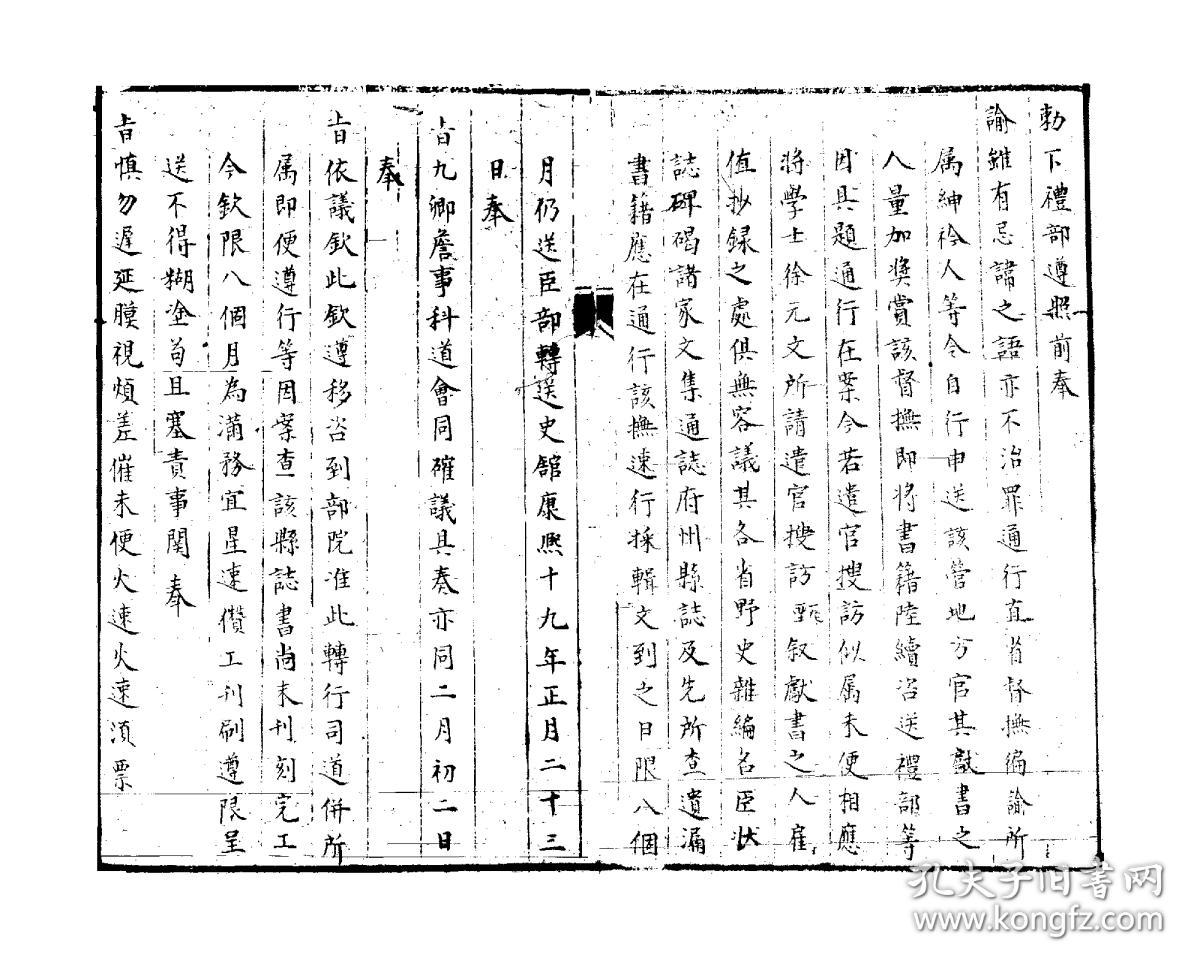 勅下禮部遵照前奉
諭雖有忌諱之語亦不治罪通行直省督撫徧諭所
属紳衿人等令自行申送該管地方官其獻書之
人量加獎賞該督撫即将書籍陸續咨送禮部等
因具題通行在案今若遣官搜訪似属未便相應
将學士徐元文所請遣官搜訪甄叙獻書之人雇
值抄録之處俱無容議其各省野史雜編名臣狀
誌碑碣諸家文集通誌府州縣誌及先所查遺漏
書籍應在通行該撫速行採輯文到之日限八個
月仍送臣部轉送史舘康熙十九年正月二十三
日奉
旨九卿詹事科道會同確議具奏亦同二月初二日
奉
旨依議欽此欽遵移咨到部院准此轉行司道併所
属即便遵行等因案查該縣誌書尚未刊刻完工
今欽限八個月為滿務宜星速儹工刊刷遵限呈
送不得糊塗苟且塞責事関奉
旨慎勿遲延膜視煩差催未便火速火速須票
孔夫子旧书网
www.kongfz.com